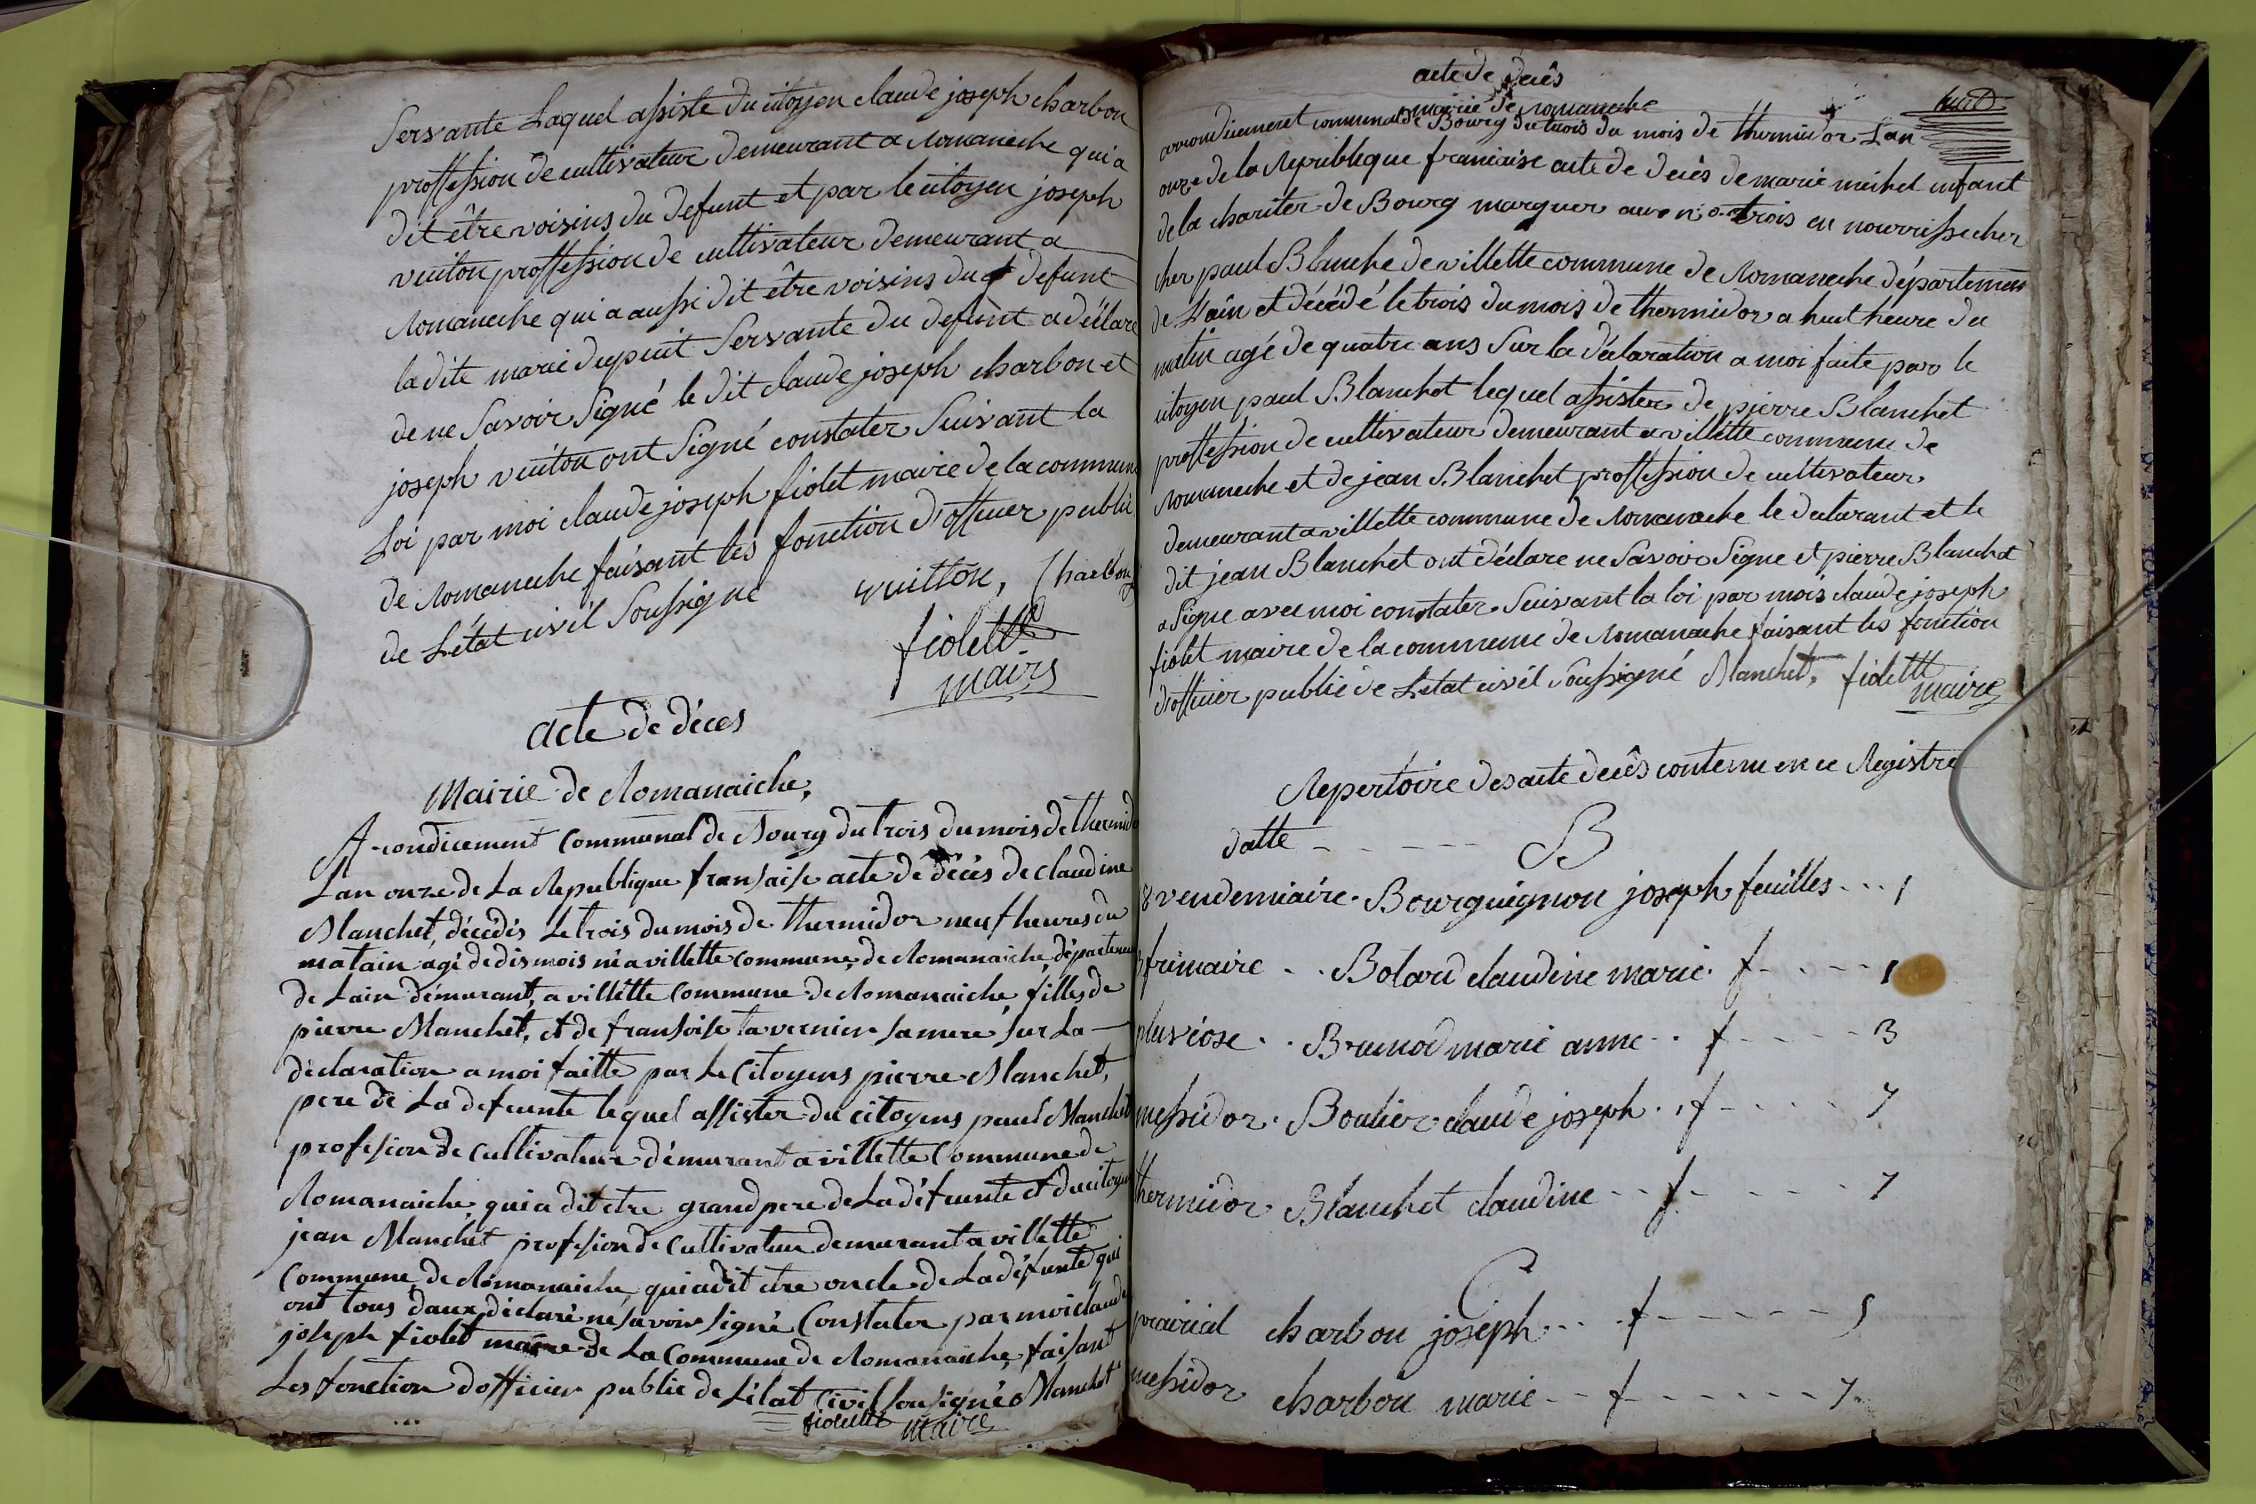 Servante Laquel assiste du citoyen claude joseph charbon
proffession de cultivateur demeurant a Romaneche qui a
dit être voisins du defunt et par le citoyen joseph
vuiton proffession de cultivateur demeurant a
Romaneche qui a aussi dit être voisins du defunt
la dite marie dupuit Servante du defunt a déclaré
de ne Savoir Signé le dit claude joseph charbon et
joseph vuiton ont Signé constater Suivant la
Loi par moi claude joseph fiolet maire de la commune
de Romaneche faisant les fonction d'officier public
de L'état civil Soussigné vuitton, Charbon
fiolett
maire
acte de déces
Mairie de Romanaiche,
A rondicement Communal de Bourg du trois du mois de thermidor
Lan onze de La Republique fransaise acte de décés de claudine
Blanchet, décédés Le trois du mois de thermidor neuf heures du
matain agé de dis mois né a villette Commune de Romanaiche, département
de Lain démurant, a villette Commune de Romanaiche filles de
pierre Blanchet, et de fransoise tavernier sa mere sur La
déclaration a moi faitte par Le Citoyens pierre Blanchet,
pere de La defeunte lequel assister du citoyens paul Blanchet
profesion de Cultivateur démurant a villette Commune de
Romanaiche, qui a dit etre grand pere de La défeunte et du citoyen
jean Blanchet profesion de Cultivateur demurant a villette
Commune de Romanaiche, qui a dit etre oncle de La défunte qui
ont tous daux déclaré ne savoir signé Constater par moi claude
joseph fiolet maire de La Commune de Romanaiche, faisant
Les fonction dofficier public de Létat Civil sousignés Blanchet
fiolette maire
acte de décês
huit
mairie de Romaneche
arrondicemeret communal de Bourg du trois du mois de thermidor Lan
onze de la Republeque francaise acte de decês de marie michel enfant
de la chariter de Bourg marquer au n° trois en nourrisse cher
cher paul Blanche de villette commune de Romaneche département
de L'ain et décédé le trois du mois de thermidor a huit heure du
matin agé de quatre ans Sur la déclaration a moi faite par le
citoyen paul Blanchet lequel assister de pierre Blanchet
proffession de cultivateur demeurant a villette commune de
Romaneche et de jean Blanchet proffession de cultivateur
demeurant a villette commune de Romaneche le declarant et le
dit jean Blanchet ont déclare ne Savoir Signe et pierre Blanchet
a Signe avec moi constater Suivant la loi par mois claude joseph
fiolet maire de la commune de Romaneche faisant les fonction
d'officier public de L'etat civil Soussigné Blanchet, fiolett
maire
Repertoire des acte decês contenu en ce Registre
datte - - - - - - B
8 vendemiaire. Bourguignon joseph feuilles - - - 1
frimaire - - Botard claudine marie. f - - - - 1
pluviose - - Brunod marie anne - - f - - - - 3
messidor. Boulier claude joseph. f - - - - 7
thermidor Blanchet claudine - - f - - - - - 7
C
prairial charbon joseph - - - f - - - - - 5
messidor charbon marie - - f - - - - - - 7